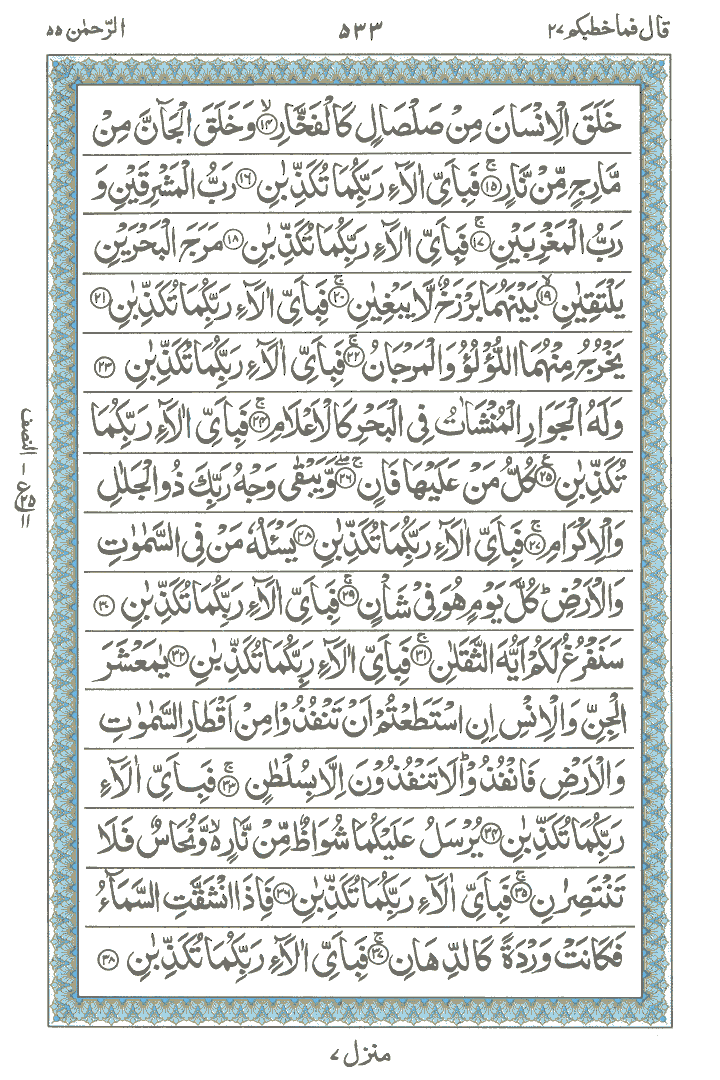 قال فما خطبكم ٢٧
٥٣٣
الرّحمٰن ٥٥
خَلَقَ الْاِنْسَانَ مِنْ صَلْصَالٍ كَالْفَخَّارِ ۙ﴿۱۴﴾ وَخَلَقَ الْجَآنَّ مِنْ
مَّارِجٍ مِّنْ نَّارٍ ۚ﴿۱۵﴾ فَبِاَىِّ اٰلَآءِ رَبِّكُمَا تُكَذِّبٰنِ ﴿۱۶﴾ رَبُّ الْمَشْرِقَيْنِ وَ
رَبُّ الْمَغْرِبَيْنِ ۚ﴿۱۷﴾ فَبِاَىِّ اٰلَآءِ رَبِّكُمَا تُكَذِّبٰنِ ﴿۱۸﴾ مَرَجَ الْبَحْرَيْنِ
يَلْتَقِيٰنِ ۙ﴿۱۹﴾ بَيْنَهُمَا بَرْزَخٌ لَّا يَبْغِيٰنِ ۚ﴿۲۰﴾ فَبِاَىِّ اٰلَآءِ رَبِّكُمَا تُكَذِّبٰنِ ﴿۲۱﴾
يَخْرُجُ مِنْهُمَا اللُّؤْلُؤُ وَالْمَرْجَانُ ۚ﴿۲۲﴾ فَبِاَىِّ اٰلَآءِ رَبِّكُمَا تُكَذِّبٰنِ ﴿۲۳﴾
وَلَهُ الْجَوَارِ الْمُنْشَاٰتُ فِى الْبَحْرِ كَالْاَعْلَامِ ۚ﴿۲۴﴾ فَبِاَىِّ اٰلَآءِ رَبِّكُمَا
تُكَذِّبٰنِ ﴿۲۵﴾ ع كُلُّ مَنْ عَلَيْهَا فَانٍ ۚۖ﴿۲۶﴾ وَّيَبْقٰى وَجْهُ رَبِّكَ ذُو الْجَلٰلِ
وَالْاِكْرَامِ ۚ﴿۲۷﴾ فَبِاَىِّ اٰلَآءِ رَبِّكُمَا تُكَذِّبٰنِ ﴿۲۸﴾ يَسْـَٔلُهٗ مَنْ فِى السَّمٰوٰتِ
وَالْاَرْضِ ؕ كُلَّ يَوْمٍ هُوَ فِىْ شَاْنٍ ۚ﴿۲۹﴾ فَبِاَىِّ اٰلَآءِ رَبِّكُمَا تُكَذِّبٰنِ ﴿۳۰﴾
سَنَفْرُغُ لَكُمْ اَيُّهَ الثَّقَلٰنِ ۚ﴿۳۱﴾ فَبِاَىِّ اٰلَآءِ رَبِّكُمَا تُكَذِّبٰنِ ﴿۳۲﴾ يٰمَعْشَرَ
الْجِنِّ وَالْاِنْسِ اِنِ اسْتَطَعْتُمْ اَنْ تَنْفُذُوْا مِنْ اَقْطَارِ السَّمٰوٰتِ
وَالْاَرْضِ فَانْفُذُوْا ؕ لَا تَنْفُذُوْنَ اِلَّا بِسُلْطٰنٍ ۚ﴿۳۳﴾ فَبِاَىِّ اٰلَآءِ
رَبِّكُمَا تُكَذِّبٰنِ ﴿۳۴﴾ يُرْسَلُ عَلَيْكُمَا شُوَاظٌ مِّنْ نَّارٍ ۙ۬ وَّنُحَاسٌ فَلَا
تَنْتَصِرٰنِ ۚ﴿۳۵﴾ فَبِاَىِّ اٰلَآءِ رَبِّكُمَا تُكَذِّبٰنِ ﴿۳۶﴾ فَاِذَا انْشَقَّتِ السَّمَآءُ
فَكَانَتْ وَرْدَةً كَالدِّهَانِ ۚ﴿۳۷﴾ فَبِاَىِّ اٰلَآءِ رَبِّكُمَا تُكَذِّبٰنِ ﴿۳۸﴾
النصف
منزل ٧